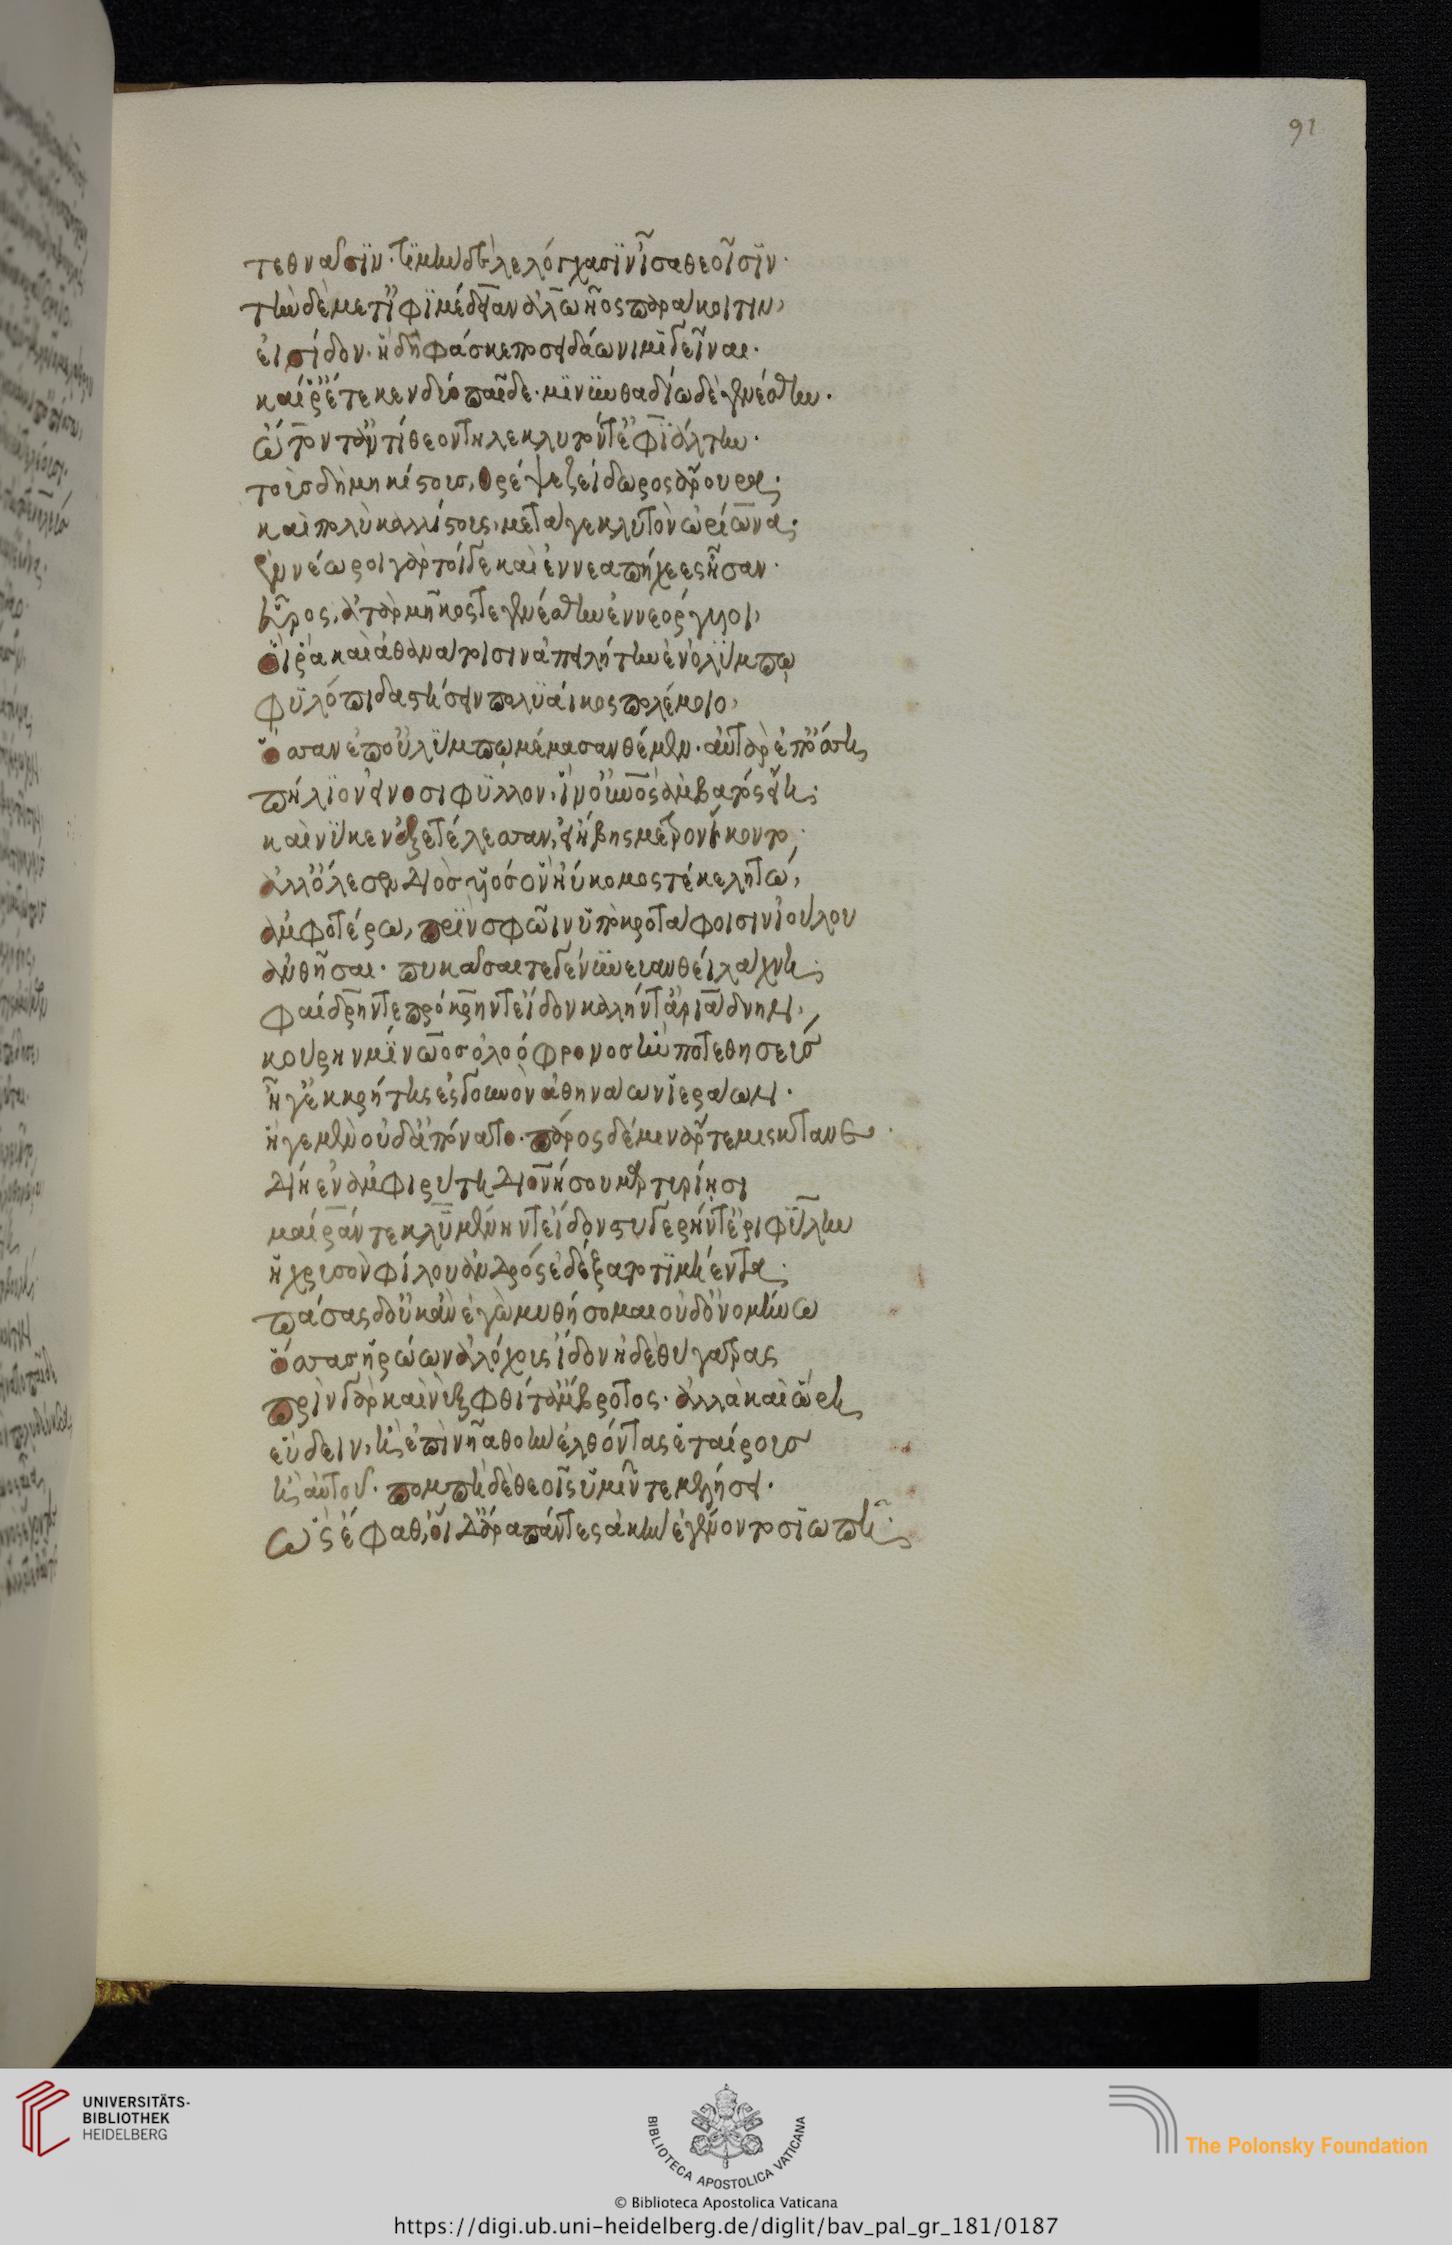 91
τεθνᾶσιν· τιμὴν δὲ λελόγχασιν ἶσα θεοῖσιν·
τὴν δὲ μετ' ἰφιμέδειαν ἀλωῆος παράκοιτιν,
εἰσίδον· ἣ δὴ φάσκε ποσειδάωνι μιγεῖναι·
καί ῥ' ἔτεκεν δύο παῖδε· μινυνθαδίω δὲ γενέσθην·
ὦτον τ' ἀντίθεον τηλεκλυτόν τ' ἐφιάλτην·
τοὺς δὴ μηκίστους, θρέψε ζείδωρος ἄρουρα·
καὶ πολὺ καλλίστους, μετά γε κλυτὸν ὠρίωνα·
ἐννέωροι γὰρ τοίγε καὶ ἐννεαπήχεες ἦσαν·
εὖρος, ἀτὰρ μῆκός τε γενέσθην ἐννεόργυιοι,
οἵ ῥα καὶ ἀθανάτοισιν ἀπειλήτην ἐν ὀλύμπῳ
φυλόπιδα στήσειν πολυάικος πολέμοιο,
ὄσσαν ἐπ' οὐλύμπῳ μέμασαν θέμεν· αὐτὰρ ἐπ' ὄσση
πήλιον εἰνοσίφυλλον, ἵν' οὐρανὸς ἀμβατὸς εἴη·
καί νύ κεν ἐξετέλεσσαν, εἰ ἥβης μέτρον ἵκοντο·
ἀλλ' ὄλεσεν διὸς υἱὸς ὃν ἠύκομος τέκε λητώ,
ἀμφοτέρω, πρίν σφωϊν ὑπὸ κροτάφοισιν ἰούλου
ἀνθῆσαι· πυκάσαι τε γένυν εὐανθέι λάχνη·
φαίδρην τε πρόκρην τε ἴδον καλήν τ' ἀριάδνην,
κούρην μίνωος ὀλοόφρονος ἥν ποτε θησεὺς
ἦγε κ κρήτης ἐς γουνὸν ἀθηνάων ἱεράων·
ἦγε μὲν οὐδ' ἀπόνατο· πάρος δέ μιν ἄρτεμις ἔκτανε
δίη ἐν ἀμφιρύτη διονύσου μαρτυρίησι
μαῖράν τε κλυμένην τε ἴδον στυγερήν τ' ἐριφύλην
ἣ χρυσὸν φίλου ἀνδρὸς ἐδέξατο τιμήεντα·
πάσας δ' οὐκ ἂν ἐγὼ μυθήσομαι οὐδ' ὀνομήνω
ὅσσας ἡρώων ἀλόχους ἴδον ἠδὲ θύγατρας
πρὶν γάρ καὶ νὺξ φθῖτ' ἄμβροτος· ἀλλὰ καὶ ὥρη
εὕδειν, ἢ ἐπὶ νῆα θοὴν ἐλθόντ' ἐς ἑταίρους
ἢ αὐτοῦ· πομπὴ δὲ θεοῖς ὑμῖν τε μελήσει·
ὣς ἔφαθ', οἱ δ' ἄρα πάντες ἀκὴν ἐγένοντο σιωπῆ·
UNIVERSITÄTS-
BIBLIOTHEK
HEIDELBERG
BIBLIOTECA APOSTOLICA VATICANA
© Biblioteca Apostolica Vaticana
The Polonsky Foundation
https://digi.ub.uni-heidelberg.de/diglit/bav_pal_gr_181/0187